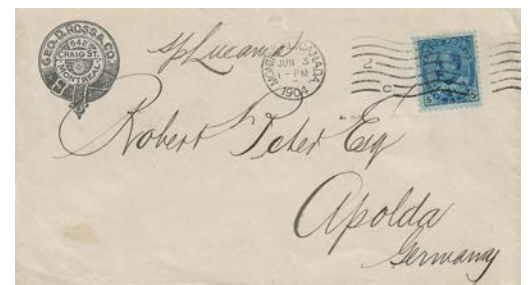 GEO. D. ROSS & CO
648
CRAIG ST.
MONTREAL
s/s Lucania
MONTREAL CANADA
JUN 3
PM
1904
5 5
Robert Peter Esq
Apolda
Germany